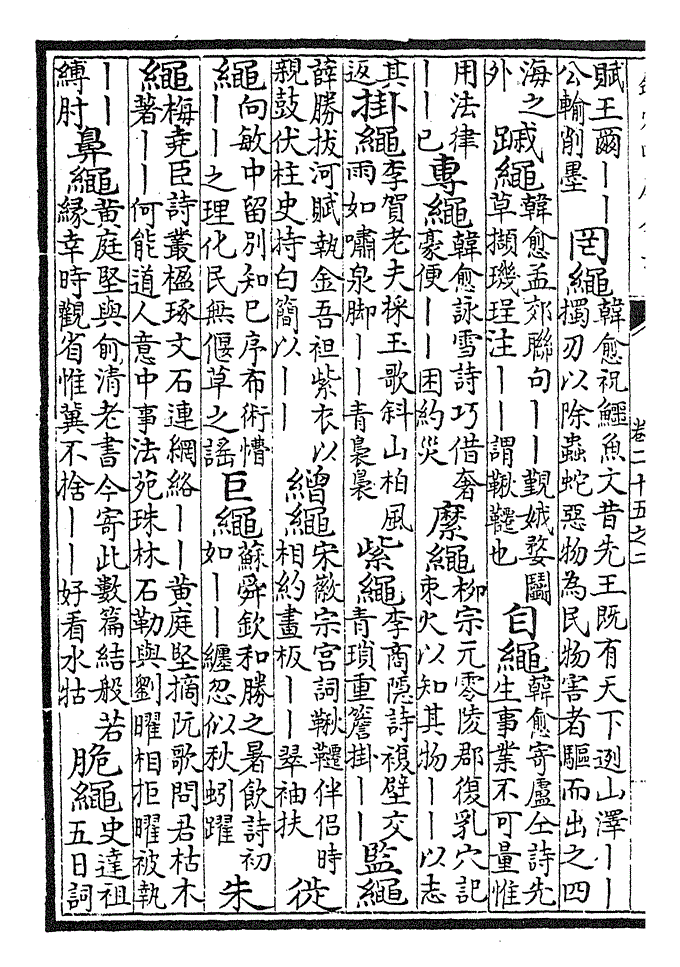 賦王爾丨丨
公輸削墨
罔繩
韓愈祝鱷魚文昔先王既有天下迾山澤丨丨
擉刃以除蟲蛇惡物為民物害者驅而出之四
海之
外
蹴繩
韓愈孟郊聯句丨丨覲娥婺鬭
草擷璣珵注丨丨謂鞦韆也
自繩
韓愈寄盧仝詩先
生事業不可量惟
用法律
丨丨已
專繩
韓愈詠雪詩巧借奢
豪便丨丨困約災
縻繩
柳宗元零陵郡復乳穴記
束火以知其物丨丨以志
其
返
掛繩
李賀老夫採玉歌斜山柏風
雨如嘯泉脚丨丨青裊裊
紫繩
李商隱詩複壁交
青瑣重簷掛丨丨
監繩
薛勝拔河賦執金吾袒紫衣以
親鼓伏柱史持白簡以丨丨
繒繩
宋徽宗宮詞鞦韆伴侶時
相約畫板丨丨翠袖扶
徙
繩
向敏中留別知已序布術懵
丨丨之理化民無偃草之謡
巨繩
蘇舜欽和勝之暑飲詩初
如丨丨纏忽似秋蚓躍
朱
繩
梅堯臣詩叢楹琢文石連網絡丨丨黄庭堅摘阮歌問君枯木
著丨丨何能道人意中事法苑珠林石勒與劉曜相拒曜被執
丨丨
縛肘
鼻繩
黄庭堅與俞清老書今寄此數篇結般若
緣幸時觀省惟冀不捨丨丨好看水牯
脆繩
史達祖
五日詞
卷二十五之二